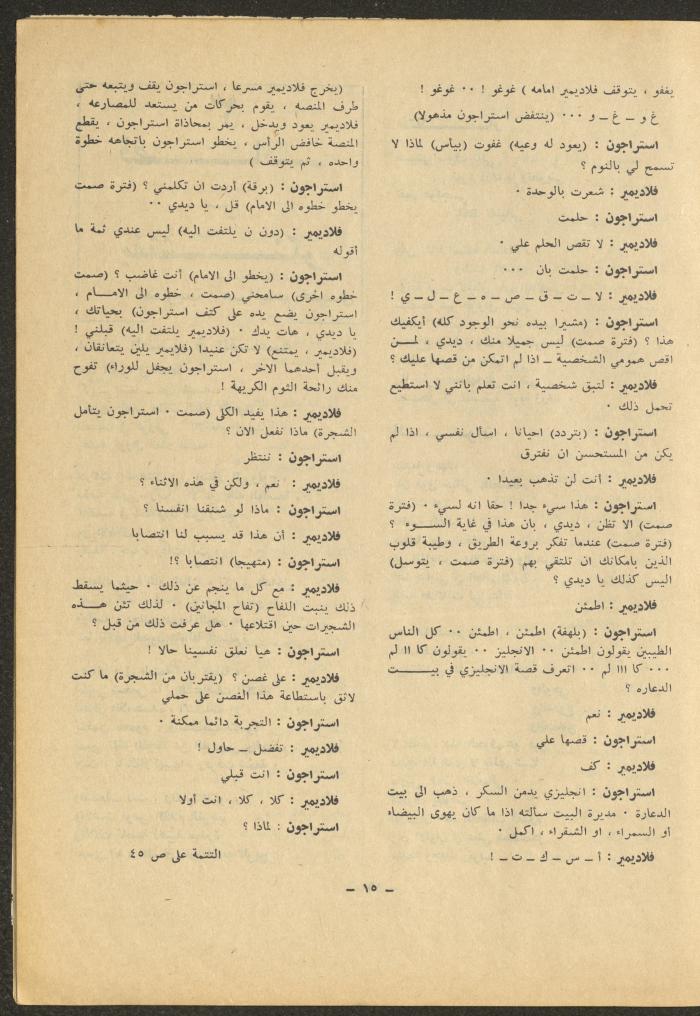 يغفو ، يتوقف فلاديمير امامه ) غوغو ! ٠٠ غوغو !
غ و ــ غ ــ و ٠٠٠ (ينتفض استراجون مذهولا)
استراجون : (يعود له وعيه) غفوت (بيأس) لماذا لا
تسمح لي بالنوم ؟
فلاديمير : شعرت بالوحدة ٠
استراجون : حلمت
فلاديمير : لا تقص الحلم علي ٠
استراجون : حلمت بان ٠٠٠
فلاديمير : لا ــ ت ــ ق ــ ص ــ ه ــ ع ــ ل ــ ي !
استراجون : (مشيرا بيده نحو الوجود كله) أيكفيك
هذا ؟ (فترة صمت) ليس جميلا منك ، ديدي ، لمــن
اقص همومي الشخصية ــ اذا لم اتمكن من قصها عليك ؟
فلاديمير : لتبق شخصية ، انت تعلم بأنني لا استطيع
تحمل ذلك ٠
استراجون : (بتردد) احيانا ، اسأل نفسي ، اذا لم
يكن من المستحسن ان نفترق
فلاديمير : أنت لن تذهب بعيدا ٠
استراجون : هذا سيء جدا ! حقا انه لسيء ٠ (فترة
صمت) الا تظن ، ديدي ، بان هذا في غاية الســوء ؟
(فترة صمت) عندما تفكر بروعة الطريق ، وطيبة قلوب
الذين بامكانك ان تلتقي بهم (فترة صمت ، يتوسل)
اليس كذلك يا ديدي ؟
فلاديمير : اطمئن
استراجون : (بلهفة) اطمئن ، اطمئن ٠٠ كل الناس
الطيبين يقولون اطمئن ٠٠ الانجليز ٠٠ يقولون كا اا لم
٠٠٠ كا ااا لم ٠٠ اتعرف قصة الانجليزي في بيــــت
الدعاره ؟
فلاديمير : نعم
استراجون : قصها علي
فلاديمير : كف
استراجون : انجليزي يدمن السكر ، ذهب الى بيت
الدعارة ٠ مديرة البيت سألته اذا ما كان يهوى البيضاء
أو السمراء ، او الشقراء ، اكمل ٠
فلاديمير : أ ــ س ــ ك ــ ت ــ !
(يخرج فلاديمير مسرعا ، استراجون يقف ويتبعه حتى
طرف المنصه ، يقوم بحركات من يستعد للمصارعه ،
فلاديمير يعود ويدخل ، يمر بمحاذاة استراجون ، يقطع
المنصة خافض الرأس ، يخطو استراجون باتجاهه خطوة
واحده ، ثم يتوقف )
استراجون : (برقة) أردت ان تكلمني ؟ (فترة صمت
يخطو خطوه الى الامام) قل ، يا ديدي ٠٠
فلاديمير : (دون ن يلتفت اليه) ليس عندي ثمة ما
أقوله
استراجون : (يخطو الى الامام) أنت غاضب ؟ (صمت
خطوه اخرى) سامحني (صمت ، خطوه الى الامـــام ،
استراجون يضع يده على كتف استراجون) بحياتك ،
يا ديدي ، هات يدك ٠ (فلاديمير يلتفت اليه) قبلني !
(فلاديمير ، يمتنع) لا تكن عنيدا (فلايمير يلين يتعانقان ،
ويقبل أحدهما الاخر ، استراجون يجفل للوراء) تفوح
منك رائحة الثوم الكريهة !
فلاديمير : هذا يفيد الكلى (صمت ٠ استراجون يتأمل
الشجرة) ماذا نفعل الان ؟
استراجون : ننتظر
فلاديمير : نعم ، ولكن في هذه الاثناء ؟
استراجون : ماذا لو شنقنا انفسنا ؟
فلاديمير : أن هذا قد يسبب لنا انتصابا
استراجون : (متهيجا) انتصابا ؟!
فلاديمير : مع كل ما ينجم عن ذلك ٠ حيثما يسقط
ذلك ينبت اللفاح (تفاح المجانين) ٠ لذلك تئن هـــذه
الشجيرات حين اقتلاعها ٠ هل عرفت ذلك من قبل ؟
استراجون : هيا نعلق نفسينا حالا !
فلاديمير : على غصن ؟ (يقتربان من الشجرة) ما كنت
لاثق باستطاعة هذا الغصن على حملي
استراجون : التجربة دائما ممكنة ٠
فلاديمير : تفضل ــ حاول !
استراجون : انت قبلي
فلاديمير : كلا ، كلا ، انت أولا
استراجون : لماذا ؟
التتمة على ص ٤٥
ــ ١٥ ــ